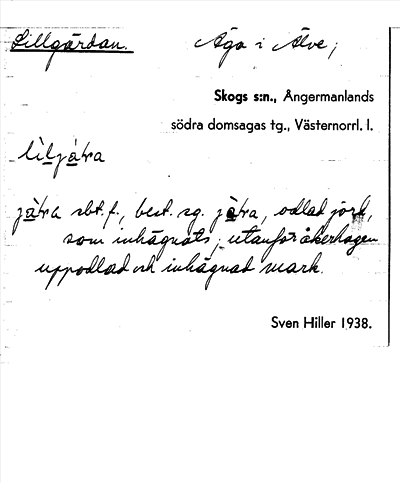 Lillgärdan. Äga i Älve,
Skogs s:n., Ångermanlands
södra domsagas tg., Västernorrl. l.
lìljä̀ra
jä̀ra sbt. f., best. sg. jä̀ra, odlad jord,
som inhägnats, utanför åkerhagen
uppodlad och inhägnad mark.
Sven Hiller 1938.